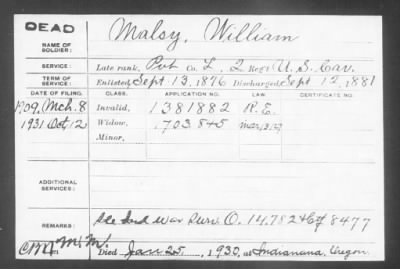 DEAD
NAME OF SOLDIER: Malsy, William
SERVICE: Late rank, Pvt Co. L, 2 Regt U.S. Cav.
TERM OF SERVICE: Enlisted Sept 13, 1876 Discharged Sept 12, 1881
DATE OF FILING. CLASS. APPLICATION NO. LAW. CERTIFICATE NO.
1909, Mch. 8 Invalid, 1381882 R.E.
1931 Oct, 12 Widow, 1703845
Minor,
ADDITIONAL SERVICES:
REMARKS: See Ind War Surv. O. 14,782 & Ctf 8477
Died Jan 25, 1930, at Oregon.